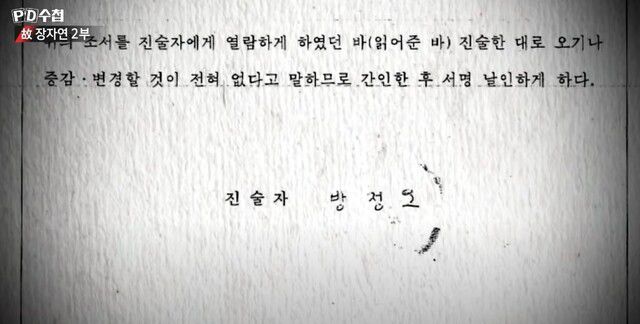 PD수첩
故 장자연 2부
위의 조서를 진술자에게 열람하게 하였던 바(읽어준 바) 진술한 대로 오기나
증감·변경할 것이 전혀 없다고 말하므로 간인한 후 서명 날인하게 하다.
진술자 방정오